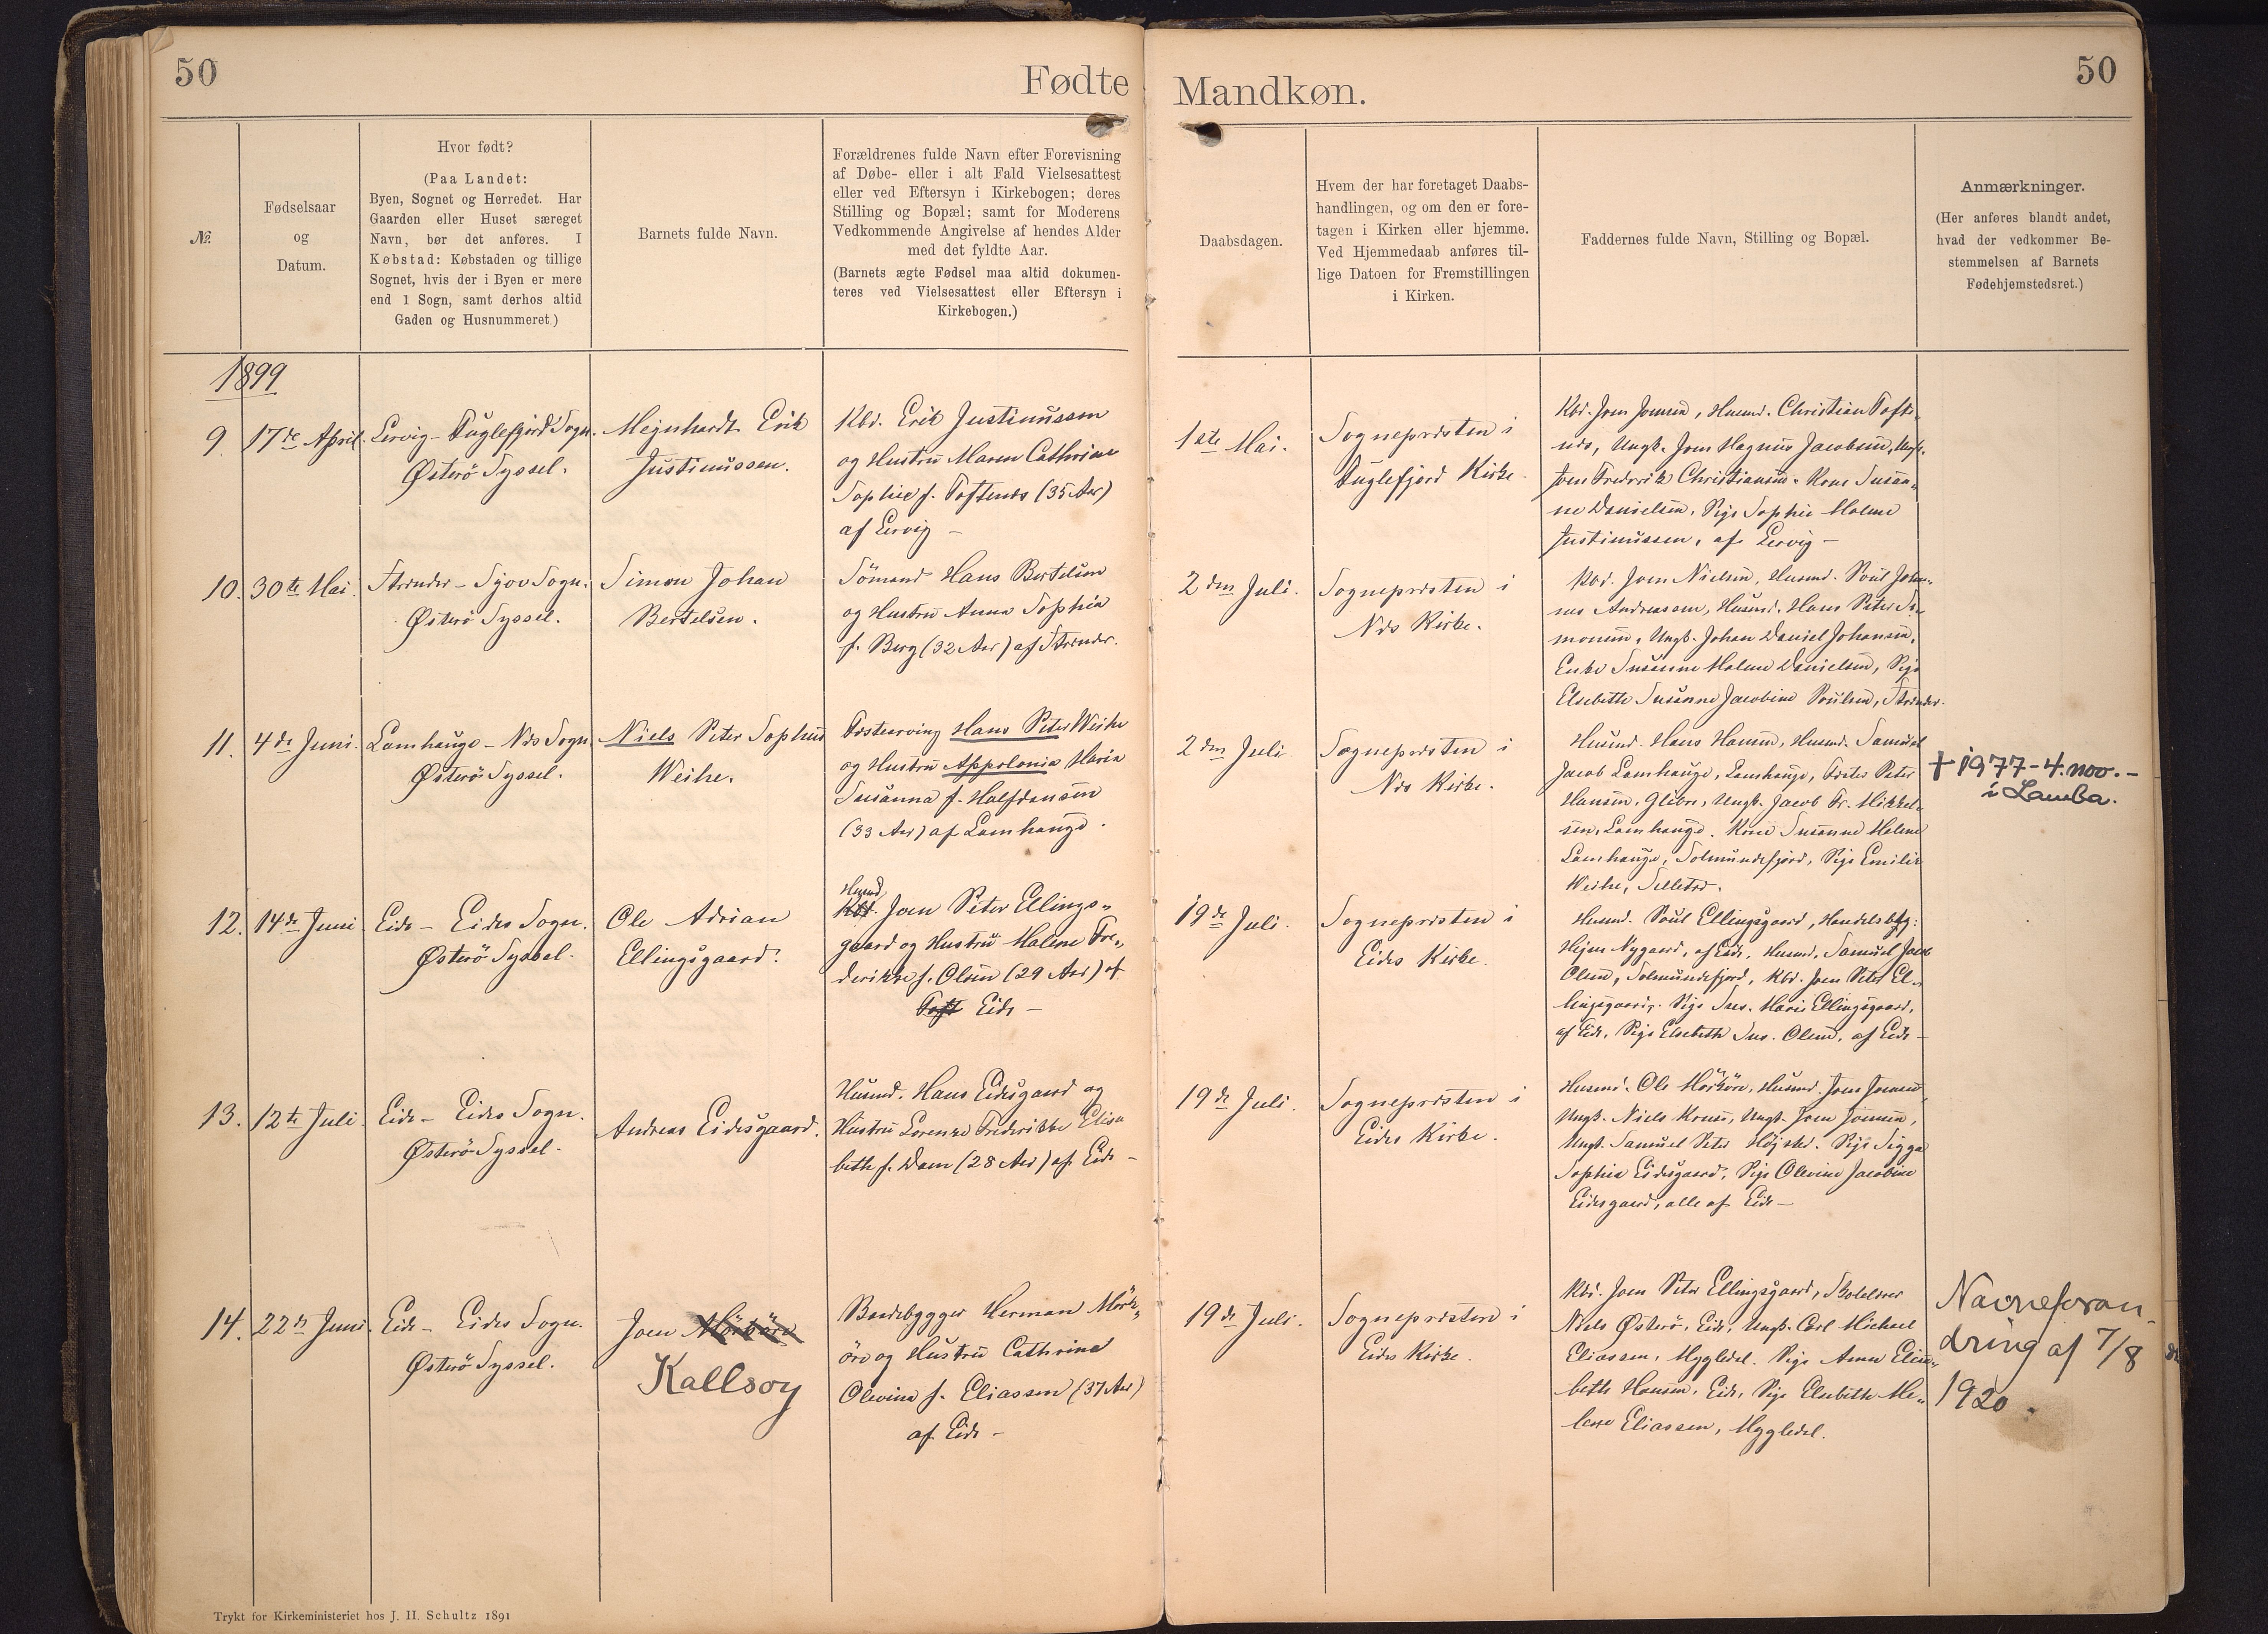 50
Fødte
Mandkøn.
50
№.
Fødselsaar
og
Datum.
Hvor født?
(Paa Landet:
Byen, Sognet og Herredet. Har
Gaarden eller Huset særeget
Navn, bør det anføres. I
Købstad: Købstaden og tillige
Sognet, hvis der i Byen er mere
end 1 Sogn, samt derhos altid
Gaden og Husnummeret.)
Barnets fulde Navn.
Forældrenes fulde Navn efter Forevisning
af Døbe- eller i alt Fald Vielsesattest
eller ved Eftersyn i Kirkebogen; deres
Stilling og Bopæl; samt for Moderens
Vedkommende Angivelse af hendes Alder
med det fyldte Aar.
(Barnets ægte Fødsel maa altid dokumen-
teres ved Vielsesattest eller Eftersyn i
Kirkebogen.)
Daabsdagen.
Hvem der har foretaget Daabs-
handlingen, og om den er fore-
tagen i Kirken eller hjemme.
Ved Hjemmedaab anføres til-
lige Datoen for Fremstillingen
i Kirken.
Faddernes fulde Navn, Stilling og Bopæl.
Anmærkninger.
(Her anføres blandt andet,
hvad der vedkommer Be-
stemmelsen af Barnets
Fødehjemstedsret.)
1899
9.
17de April.
Lervig - Fuglefjord Sogn.
Østerö Syssel.
Mejnhardt Erik
Justinussen.
Kbd. Erik Justinussen
og Hustru Maren Cathrine
Sophie f. Toftenes (35 Aar)
af Lervig -
1ste Mai.
Sognepræsten i
Fuglefjord Kirke.
Kbd. Joen Joensen, Husmd. Christian Tofte-
næs, Ungk. Joen Magnus Jacobsen, Ungk.
Joen Frederik Christiansen. Kone Susan-
ne Danielsen, Pige Sophie Malene
Justinussen, af Lervig -
10.
30te Mai.
Strænder - Sjov Sogn.
Østerö Syssel.
Simon Johan
Bertelsen.
Sömand Hans Bertelsen
og Hustru Anna Sophia
f. Berg (32 Aar) af Strænder.
2den Juli.
Sognepræsten i
Næs Kirke.
Kbd. Joen Nielsen, Husmd. Poul Johan-
nes Andreassen, Husmd. Hans Peter Si-
monsen, Ungk. Johan Daniel Johansen,
Enke Susanne Malene Danielsen, Pige
Elsebeth Susanne Jacobine Poulsen, Strænder.
11.
4de Juni.
Lamhauge - Næs Sogn.
Østerö Syssel.
Niels Peter Sophus
Weihe.
Fæstearving Hans Peter Weihe
og Hustru Appolonia Maria
Susanna f. Halfdansen
(33 Aar) af Lamhauge.
2den Juli.
Sognepræsten i
Næs Kirke.
Husmd. Hans Hansen, Husmd. Samuel
Jacob Lamhauge, Lamhauge, Peter
Hansen, Glibre, Ungk. Jacob Fr. Mikkel-
sen, Lamhauge. Kone Susanne Malene
Lamhauge, Solmundefjord, Pige Emilie
Weihe, Selletræ.
+ 1977-4. nov. -
i Lamba.
12.
14de Juni
Eide - Eides Sogn.
Østerö Syssel.
Ole Adrian
Ellingsgaard.
Husmd
Kbd. Joen Peter Ellings-
gaard og Hustru Malene Fre-
derikke f. Olsen (29 Aar) af
Toft Eide -
19de Juli.
Sognepræsten i
Eides Kirke.
Husmd. Poul Ellingsgaard, Handelsbftg:
Hejne Nygaard, af Eide, Husmd. Samuel Jacob
Olsen, Solmundefjord, Kbd. Joen Peter El-
lingsgaard, Pige Sus. Marie Ellingsgaard,
af Eide, Pige Elsebeth Sus. Olsen, af Eide -
13.
12te Juli.
Eide - Eides Sogn.
Østerö Syssel.
Andreas Eidesgaard.
Husmd. Hans Eidesgaard og
Hustru Lorense Frederikke Elisa
beth f. Dam (28 Aar) af Eide -
19de Juli.
Sognepræsten i
Eides Kirke.
Husmd. Ole Mörköre, Husmd. Joen Joensen,
Ungk. Niels Kruse, Ungk. Joen Joensen,
Ungk. Samuel Peter Höjsted. Pige Sigga
Sophie Eidesgaard, Pige Olevine Jacobine
Eidesgaard, alle af Eide -
14.
22de Juni.
Eide - Eides Sogn.
Østerö Syssel.
Joen Mörköre
Kallsoy
Baadebygger Herman Mörk-
öre og Hustru Cathrine
Olevine f. Eliassen (37 Aar)
af Eide -
19de Juli.
Sognepræsten i
Eides Kirke.
Kbd. Joen Peter Ellingsgaard, Skolelærer
Niels Østerö, Eide, Ungk. Carl Michael
Eliassen, Myggledal. Pige Anna Elsa-
beth Hansen, Eide, Pige Elsebeth Ma-
lene Eliassen, Myggledal.
Navneforan-
dring af 7/8
1920.
Trykt for Kirkeministeriet hos J. H. Schultz 1891